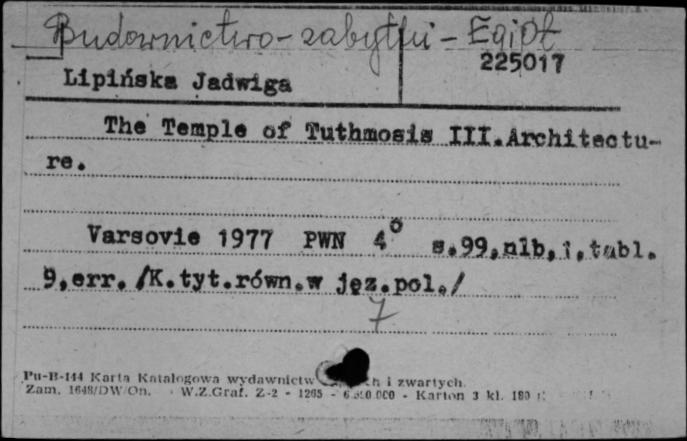 Budownictwo - zabytki - Egipt
225017
Lipińska Jadwiga
The Temple of Tuthmosis III.Architectu-
re.
Varsovie 1977 PWN 4° s.99,nlb,1,tabl.
9,err./K.tyt.równ.w jęz.pol./
7
Pu-B-144 Karta Katalogowa wydawnictw ch i zwartych.
Zam. 1648/DW/On. W.Z.Graf. Z-2 - 1265 - 000 - Karton 3 kl. 180